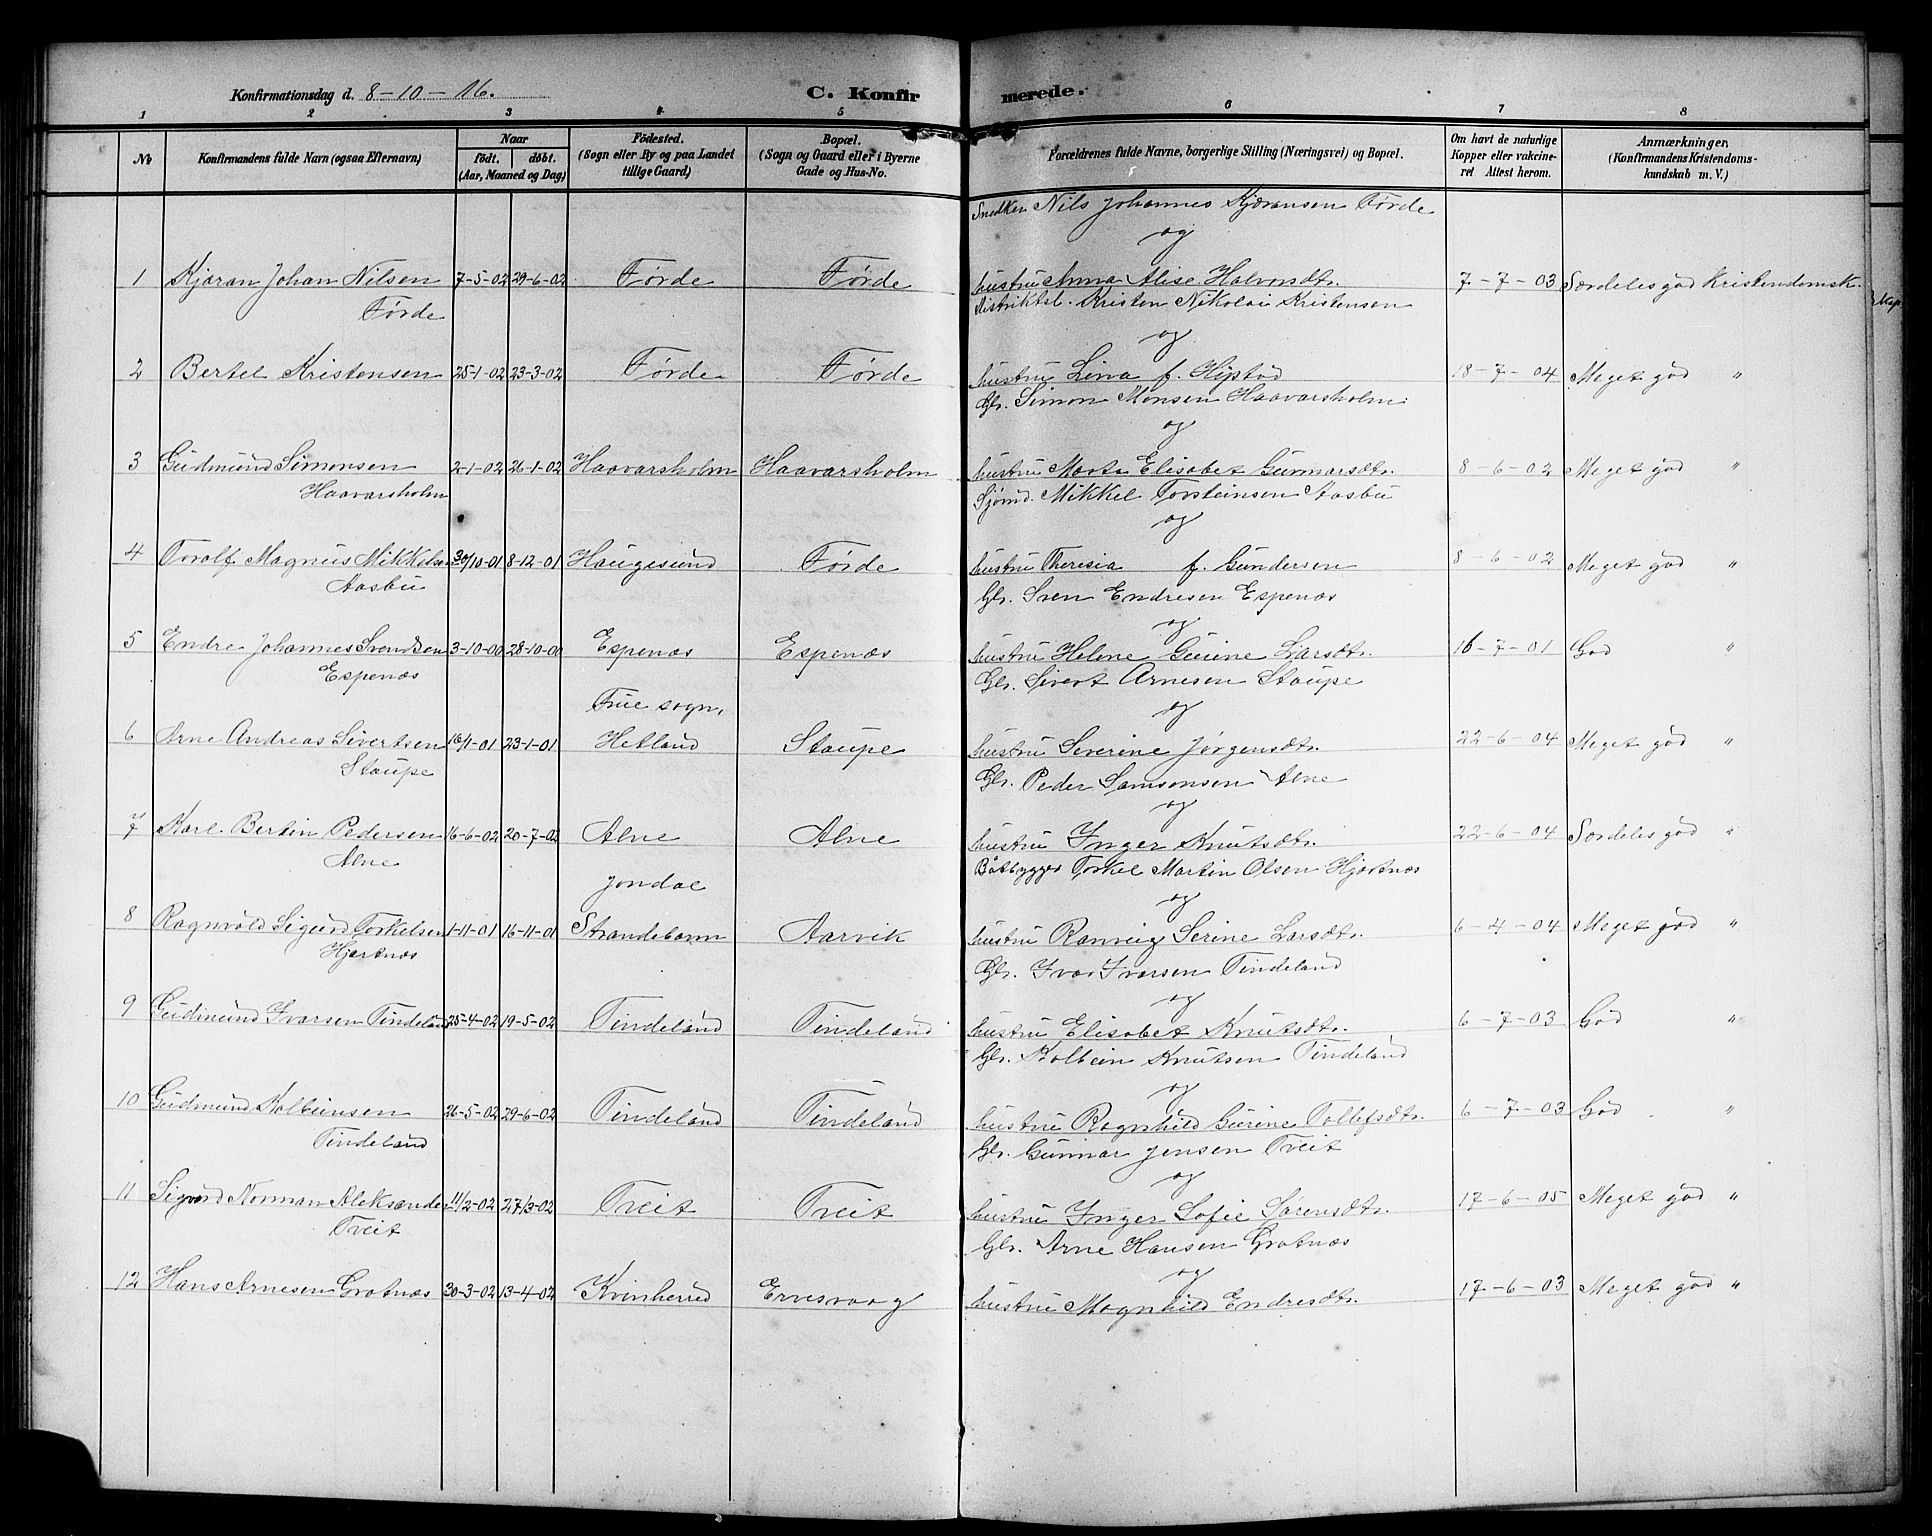 Konfirmationsdag d. 8-10-16. C. Konfirmerede.
1 2 3 4 5 6 7 8
No Konfirmandens fulde Navn (ogsaa Efternavn) Naar født. døbt. (Aar, Maaned og Dag) Fødested. (Sogn eller By og paa Landet tillige Gaard) Bopæl. (Sogn og Gaard eller i Byerne Gade og Hus-No. Forældrenes fulde Navne, borgerlige Stilling (Næringsvei) og Bopæl. Om havt de naturlige Kopper eller vakcineret Attest herom. Anmærkninger. (Konfirmandens Kristendomskundskab m. V.)
Snedker Nils Johannes Kjæransen Førde
og
1 Kjæran Johan Nilsen 7-5-02 29-6-02 Førde Førde hustru Anna Alise Halvorsdtr. 7-7-03 Særdeles god Kristendomsk.
Førde distriktsl. Kristen Nikolai Kristensen
og
2 Bertel Kristensen 25-1-02 23-3-02 Førde Førde hustru Lina f. 18-7-04 Meget god "
Gbr. Simon Monsen Haavarsholm
og
3 Gudmund Simonsen 2-1-02 26-1-02 Haavarsholm Haavarsholm hustru Marta Elisabet Gunnarsdtr. 8-6-02 Meget god "
Haavarsholm Sjømd. Mikkel Torsteinsen Aasbu
og
4 Torolf Magnus Mikkelsen 30/10-01 8-12-01 Haugesund Førde hustru Theresia f. Gundersen 8-6-02 Meget god "
Aasbu Gbr. Sven Endresen Espenæs
og
5 Endre Johannes Svendsen 3-10-00 28-10-00 Espenæs Espenæs hustru Helene Gurine Larsdtr. 16-7-01 God "
Espenæs Gbr. Sivert Arnesen Staupe
Frue sogn, og
6 Arne Andreas Sivertsen 16/1-01 23-1-01 Hetland Staupe hustru Severine Jørgensdtr. 22-6-04 Meget god "
Staupe Gbr. Peder Samsonsen Alne
og
7 Karl Bertin Pedersen 16-6-02 20-7-02 Alne Alne hustru Inger Knutsdtr. 22-6-04 Særdeles god "
Alne Båtbygger Torkel Martin Olsen Hjartnæs
Jondal og
8 Ragnvald Sigurd Torkelsen 1-11-01 16-11-01 Strandebarm Aarvik hustru Ranveig Serine Larsdtr. 6-4-04 Meget god "
Hjartnæs Gbr. Ivar Ivarsen Tindeland
og
9 Gudmund Ivarsen Tindeland 25-4-02 19-5-02 Tindeland Tindeland hustru Elisabet Knutsdtr. 6-7-03 God "
Gbr. Kolbein Knutsen Tindeland
og
10 Gudmund Kolbeinsen 26-5-02 29-6-02 Tindeland Tindeland hustru Ragnhild Gurine Tollefsdtr. 6-7-03 God "
Tindeland Gbr. Gunnar Jensen Tveit
og
11 Sigurd Norman Aleksander 11/2-02 27/3-02 Tveit Tveit hustru Inger Sofie Sørensdtr. 17-6-05 Meget god "
Tveit Gbr. Arne Hansen Grotnæs
og
12 Hans Arnesen Grotnæs 30-3-02 13-4-02 Kvinherred Ervesvaag hustru Magnhild Endresdtr. 17-6-03 Meget god "